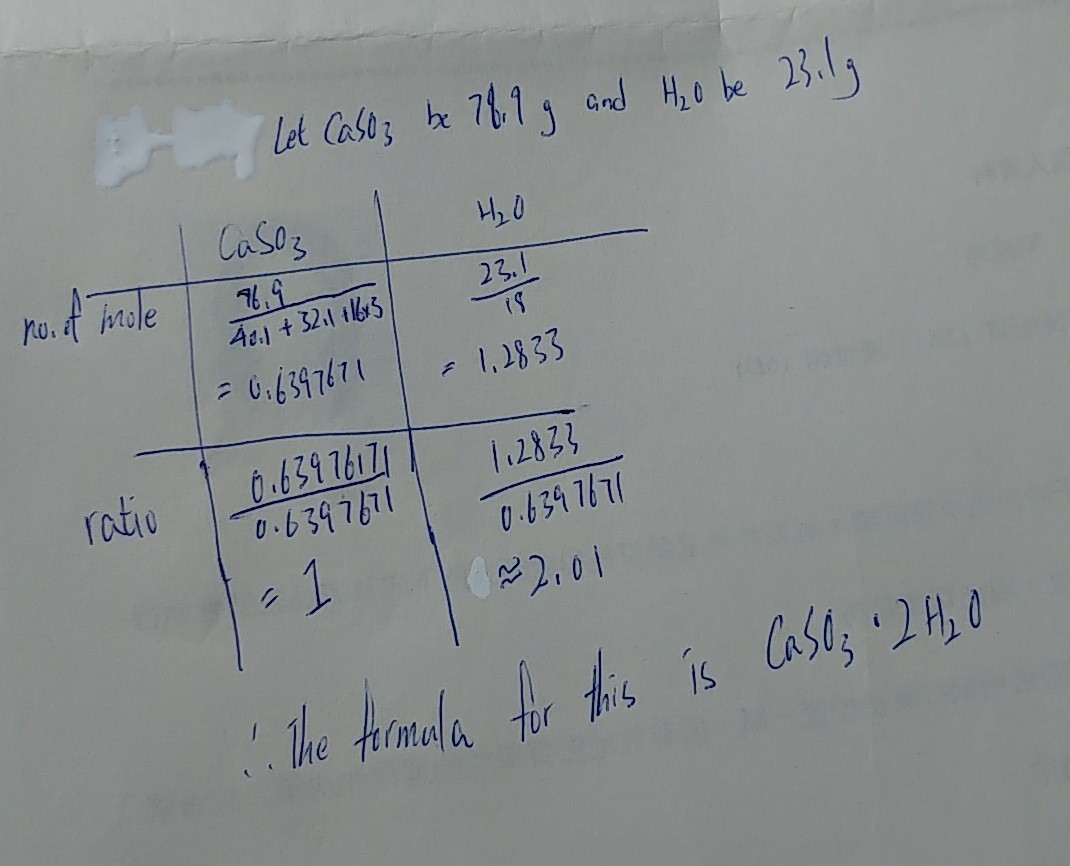 Let CaSO₃ be 78.9 g and H₂O be 23.1g
CaSO₃ H₂O
no. of mole 76.9/40.1 + 32.1 + 16×3 23.1/18
= 0.6397671 = 1.2833
ratio 0.63976171/0.6397671 1.2833/0.6397671
= 1 ≈ 2.01
∴ The formula for this is CaSO₃ · 2H₂O